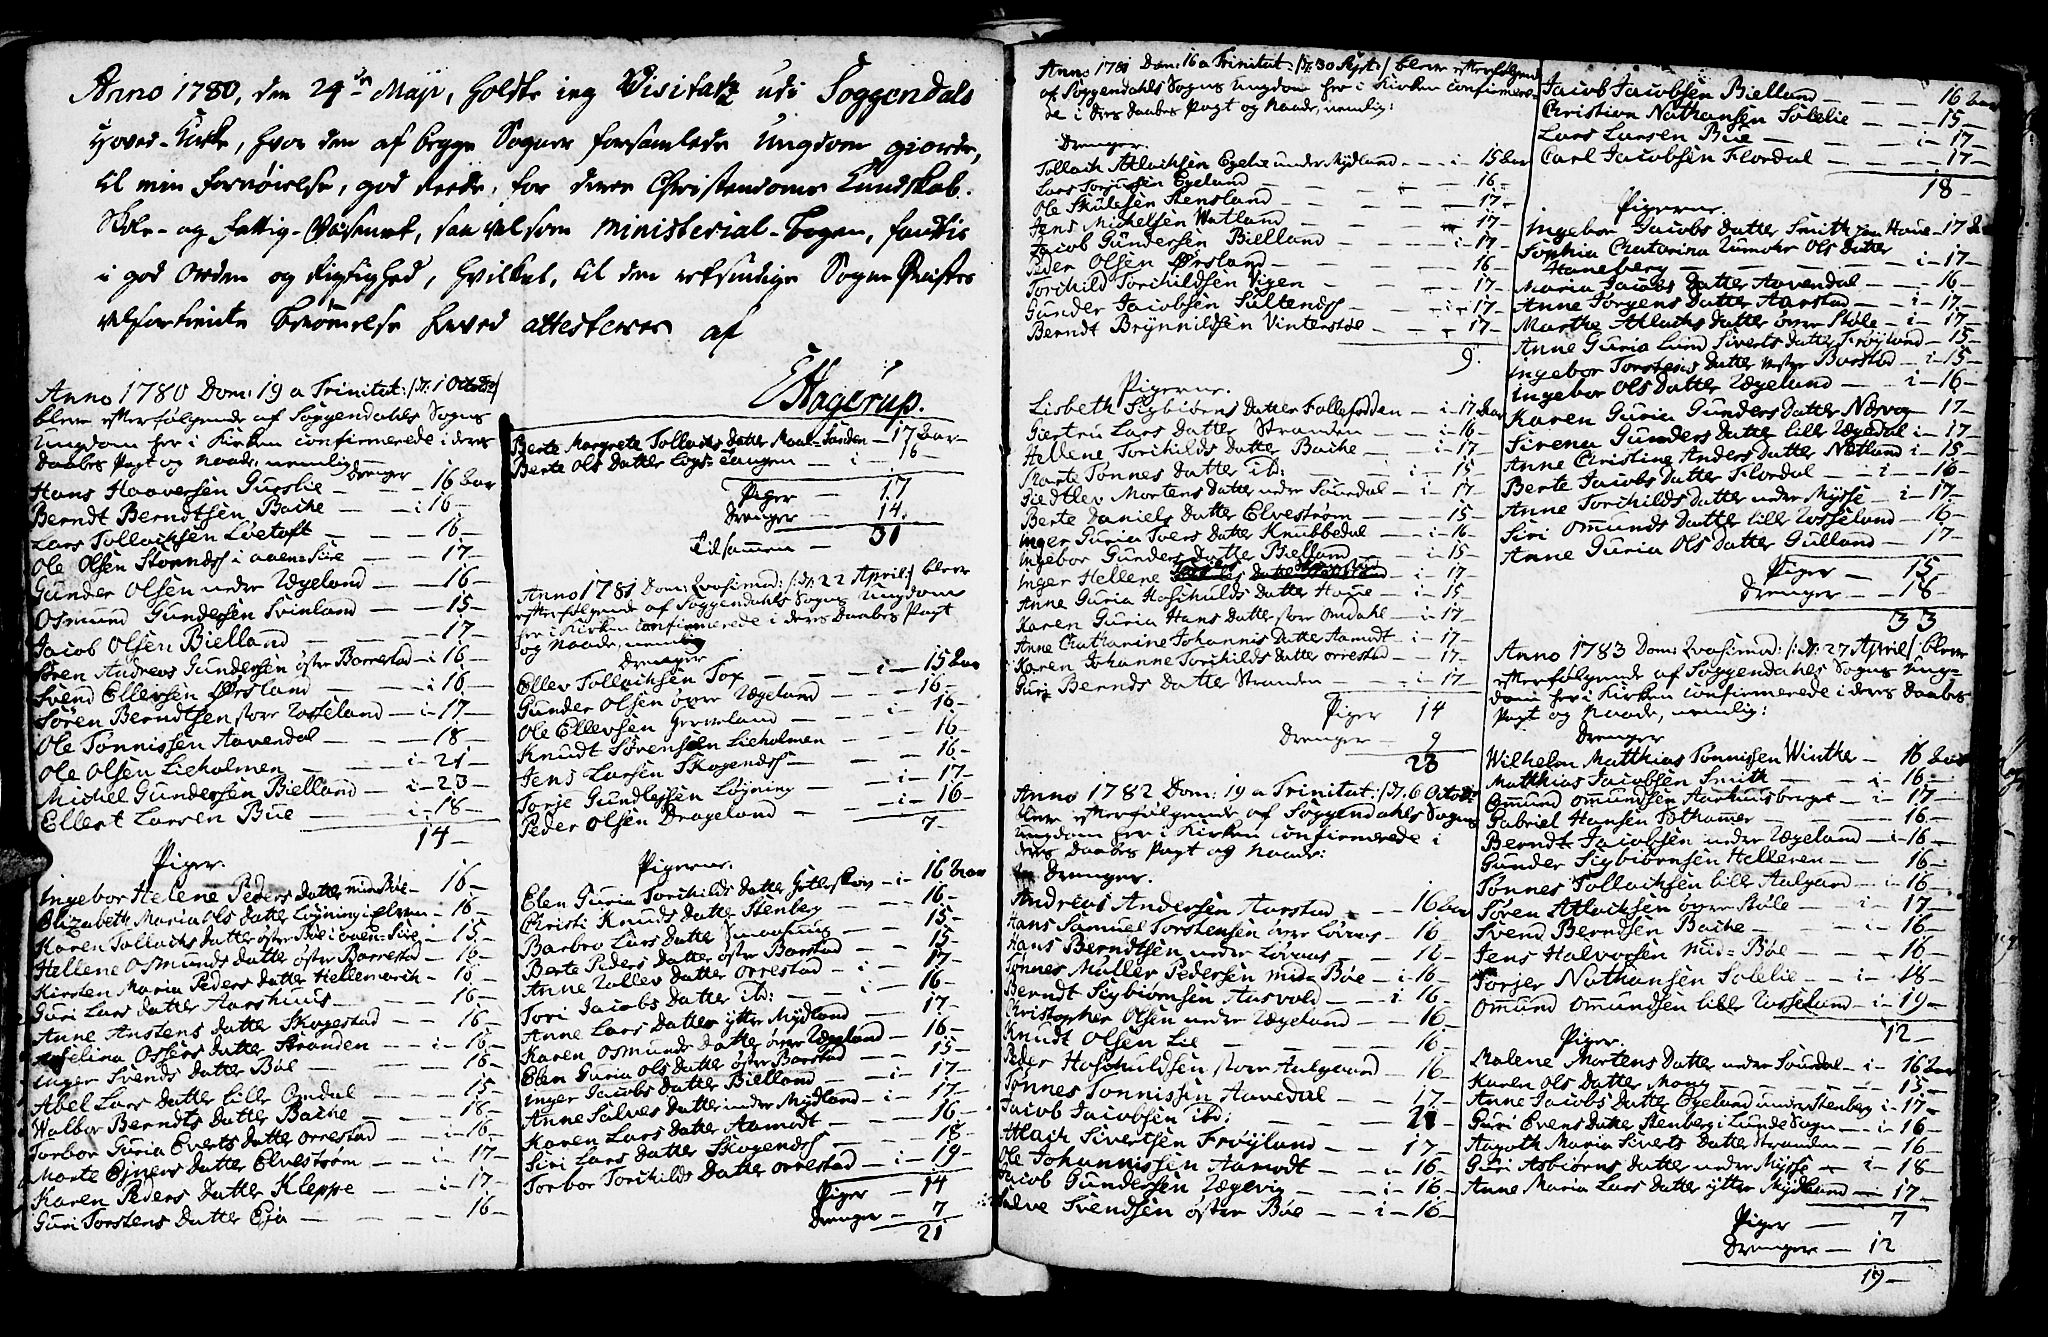 Anno 1780, den 24de Maji, holdte ieg Visitatz udi Soggendals
Hoved-Kirke, hvor den af begge Sogner forsamlede Ungdom giorde,
til min fornøielse, god reede, for deres Christendoms Kundskab.
Skole- og Fattig-Væsenet, saavelsom Ministerial-Bogen, fandtis
i god Orden og Rigtighed, hvilket, til den
velfortiente Berømmelse herved attesteres af
EHagerup.
Anno 1780 Dom: 19 a Trinitat: /:d. 1 Octobr:/
bleve efterfølgende af Soggendahls Sogns
Ungdom her i Kirken confirmerede i deres
Daabes Pagt og Naade, nemlig
Drenger
Hans Haaversen Guslie — 16 aar
Berndt Berndtsen Bache — i 16 —
Lars Tollachsen Løetoft — 16 —
Ole Olsen Strandss i aaen-Sire — 17 —
Gunder Olsen nedre Ægeland — 16 —
Osmund Gundersen Svinland — 15 —
Jacob Olsen Bielland — 17 —
Søren Andreas Gundersen øster Barrestad — i 16 —
Svend Ellevsen Ørsland — i 16 —
Søren Berndtsen store Vosseland — i — 17 —
Ole Tønnissen Aavendal — 18 —
Ole Olsen Lieholmen — i — 21 —
Michel Gundersen Bielland — i — 23 —
Ellert Larsen Bue — i — 18 —
14 —
Piger.
Ingebor Helene Peders datter mid-Bøe — 16 —
Elizabeth Maria Ols datter Løgning i elven — 16 —
Karen Tollachs datter øster Bøe i aaen-Sire — 15 —
Hellene Osmunds datter øster Barrestad — 16 —
Kirsten Maria Peders datter Hellemarich — 16
Guri Lars datter Aarshuus — 16 —
Anne Anstens datter Skogestad — 16 —
Asselina Ossers datter Stranden — i — 16 —
Inger Svends datter Bøe — 16 —
Abel Lars datter Lille Omdal — 15 —
Walbor Berndts datter Bache — 18 —
Torbor Guria Everts datter Orrestad — i — 16 —
Marte Ejners datter Elvestrøm — i — 17 —
Karen Peders datter Kleppe — i — 17 —
Guri Torstens datter Eja — 16 —
Berte Margrete Tollachs datter Maal-Sanden — 17 aar —
Berte Ols datter Logs-Tangen — i — 16 —
Piger — 17
Drenger — 14.
tilsammen — 31
Anno 1781 Dom: Quasimod: /:d. 22 April:/ bleve
efterfølgende af Soggendahls Sogns Ungdom
her i Kirken confirmerede i deres Daabes Pagt
og Naade, nemlig
Drenger
Ellev Tollachsen Tox — i — 15 aar
Gunder Olsen øvre Ægeland — 16 —
Ole Ellevsen Gerveland — i — 16 —
Knudt Sørensen Lieholmen — 16 —
Jens Larsen Skogendss — 16 —
Torje Gundersen Løgning — i — 17 —
Peder Olsen Drageland — i — 16 —
7 —
Pigerne.
Elen Guria Torchilds datter Heterskov — i — 16 aar
Christi Knuds datter Stenberg — 16 —
Barbro Lars datter — 15 —
Berte Peders datter øster Barstad — 15 —
Anne datter Orrestad — 17 —
Tori Jacobs datter ib: — i — 16 —
Anne Lars datter ytter Mydland — 17 —
Karen Osmunds datter øvre Ægeland — 16 —
Elen Guria Ols datter øster Barstad — 15 —
Inger Jacobs datter Bielland — i — 17 —
Anne Salves datter under Mydland — i — 17 —
Karen Lars datter Aamodt — 16 —
Siri Lars datter Skogendss — 18 —
Torbor Torchilds datter Orrestad — i — 19 —
Piger — 14
Drenger — 7
21
Anno 1781 Dom: 16 a Trinitat: /:d. 30 Sept:/ bleve efterfølgende
af Soggendahls Sogns Ungdom her i Kirken confirmere-
de i deres Daabes Pagt og Naade, nemlig:
Drenger.
Tollach Atlachsen Egelie under Mydland — i — 15 aar
Lars Torjussen Egeland — 16 —
Ole Skulesen Stensland — 17 —
Jens Michelsen Watland — 17 —
Jacob Gundersen Bielland — i — 17 —
Peder Olsen Ørsland — 16 —
Torchild Torchildsen Vigen — 17 —
Gunder Jacobsen Sultendss — i — 17 —
Berndt Brynnildsen Vinterstøe — 17 —
9.
Pigerne.
Lisbeth Sigbiørns datter Follesødden — i — 17 aar
Giertru Lars datter Stranden — i — 16 —
Hellene Torchilds datter Bache — i — 17 —
Marte Tønnes datter ib: — i — 15 —
Giedtlev Mortens datter nedre Souredal — i — 17 —
Berte Daniels datter Elvestrøm — 15 —
Inger Guria Ivers datter Knubbedal — i — 16 —
Ingebor Gunders datter Bielland — i — 15 —
Inger Hellene — i — 17 —
Anne Guria Hoschulds datter Houe — i — 15 —
Karen Guria Hans datter store Omdahl — i — 17 —
Anne Chatharine Johannis datter Aamodt — i — 17 —
Karen Johanne Torchilds datter Orrestad — 17 —
Guri Bernds datter Stranden — i — 17 —
Piger 14
Drenger — 9
23
Anno 1782 Dom: 19 a Trinitat: /:d. 6 Octobr
bleve efterfølgende af Soggendahls Sogns
Ungdom her i Kirken confirmerede i
deres Daabes Pagt og Naade:
Drenger.
Andreas Andersen Aarstad — 16 aar
Hans Samuel Torstensen øvre Løvaas — 16 —
Hans Berndtsen nedre Løvaas — 16 —
Tønnes Møller Pedersen mid-Bøe — i — 16 —
Berndt Sigbiørnsen Aasvold — i 16 —
Christopher Olsen nedre Ægeland — 16 —
Knudt Olsen Lie — 16 —
Peder Hoschuldsen store Aalgaard — 16 —
Tønnes Tønnissen Aavedal — 17 —
Jacob Jacobsen ib: — 21 —
Atlach Sivertsen Frøyland — 17 —
Ole Johannissen Aamodt — i — 16 —
Jacob Gundersen Ægevig — i — 16 —
Salve Svendsen øster Bøe — i — 16 —
Jacob Jacobsen Bielland — 16 aar
Christian Nathansen Solelie — 15 —
Lars Larsen Bue — i — 17 —
Carl Jacobsen Flordal — 17 —
18 —
Pigerne.
Ingebor Jacobs datter Smith paa Houe — 17
Sophia Chatarina Lumohr Ols datter
Haneberg — i — 17 —
Maria Jacobs datter Aavendal — 16 —
Anne Jørgens datter Aarstad — i — 17 —
Marthe Atlachs datter øvre Støle — i — 17 —
Anne Guria Lund Siverts datter Frøyland — 15 —
Ingebor Torstens datter vester Barstad — i — 15 —
Ingebor Ols datter Ægeland — i — 16 —
Karen Guria Gunders datter — 17 —
Sirena Gunders datter lille Ægedal — i — 17 —
Anne Christine Anders datter Netland — i — 15 —
Berte Jacobs datter Flordal — i — 16 —
Anne Torchilds datter nedre Mysse — i — 17 —
Siri Omunds datter lille Vosseland — 16 —
Anne Guria Ols datter Gulland — 17 —
Piger — 15
Drenger — 18 —
33
Anno 1783 Dom: Quasimod: /:d. 27 April:/ bleve
efterfølgende af Soggendahls Sogns Ung-
dom her i Kirken confirmerede i deres Daabes
Pagt og Naade, nemlig:
Drenger
Wilhelm Matthias Tønnissen Winther — 16 aar
Matthias Jacobsen Smith — i — 16 —
Omund Omundsen Aarhuusberget — i — 17 —
Gabriel Hansen — 16 —
Berndt Jacobsen nedre Ægeland — i — 16 —
Gunder Sigbiørnsen Helleren — 16 —
Tønnes Tollachsen lille Aalgaard — i — 16 —
Søren Atlachsen øvre Støle — i — 17 —
Svend Berndsen Bache — 16 —
Jens Halvorsen Mid-Bøe — 16 —
Torjer Nathansen Solelie — i — 18 —
Omund Omundsen lille Vosseland — i — 19 —
12 —
Piger.
Malene Mortens datter nedre Souredal — i — 16 aar
Karen Ols datter Mong — 15 —
Anne Jacobs datter Egeland under Stenberg — i — 17 —
Guri Evens datter Stenberg i Lunde Sogn — i — 16 —
Aagoth Maria Siverts datter Stranden — 16 —
Guri Asbiørns datter nedre Mysse — i — 18 —
Anne Maria Lars datter ytter Mydland — i — 17 —
Piger — 7
Drenger — 12
19 —